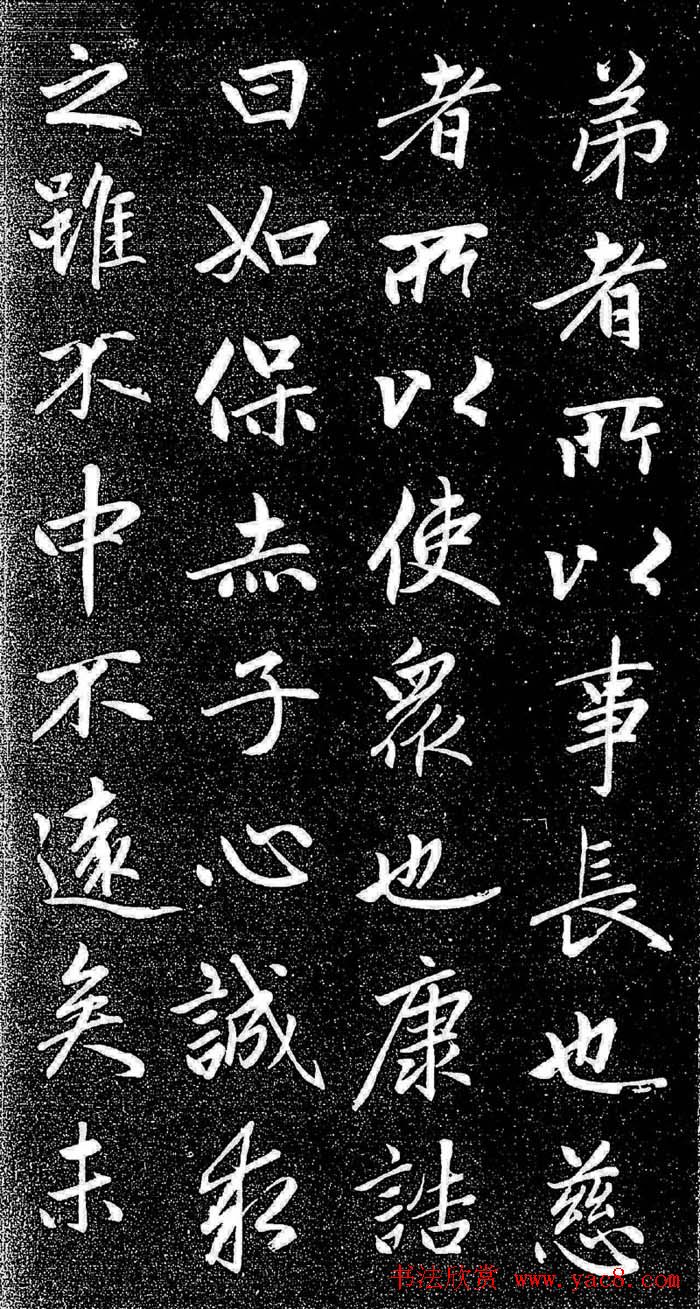 弟者所以事長也慈
者所以使眾也康誥
曰如保赤子心誠求
之雖不中不遠矣未
书法欣赏 www.yac8.com